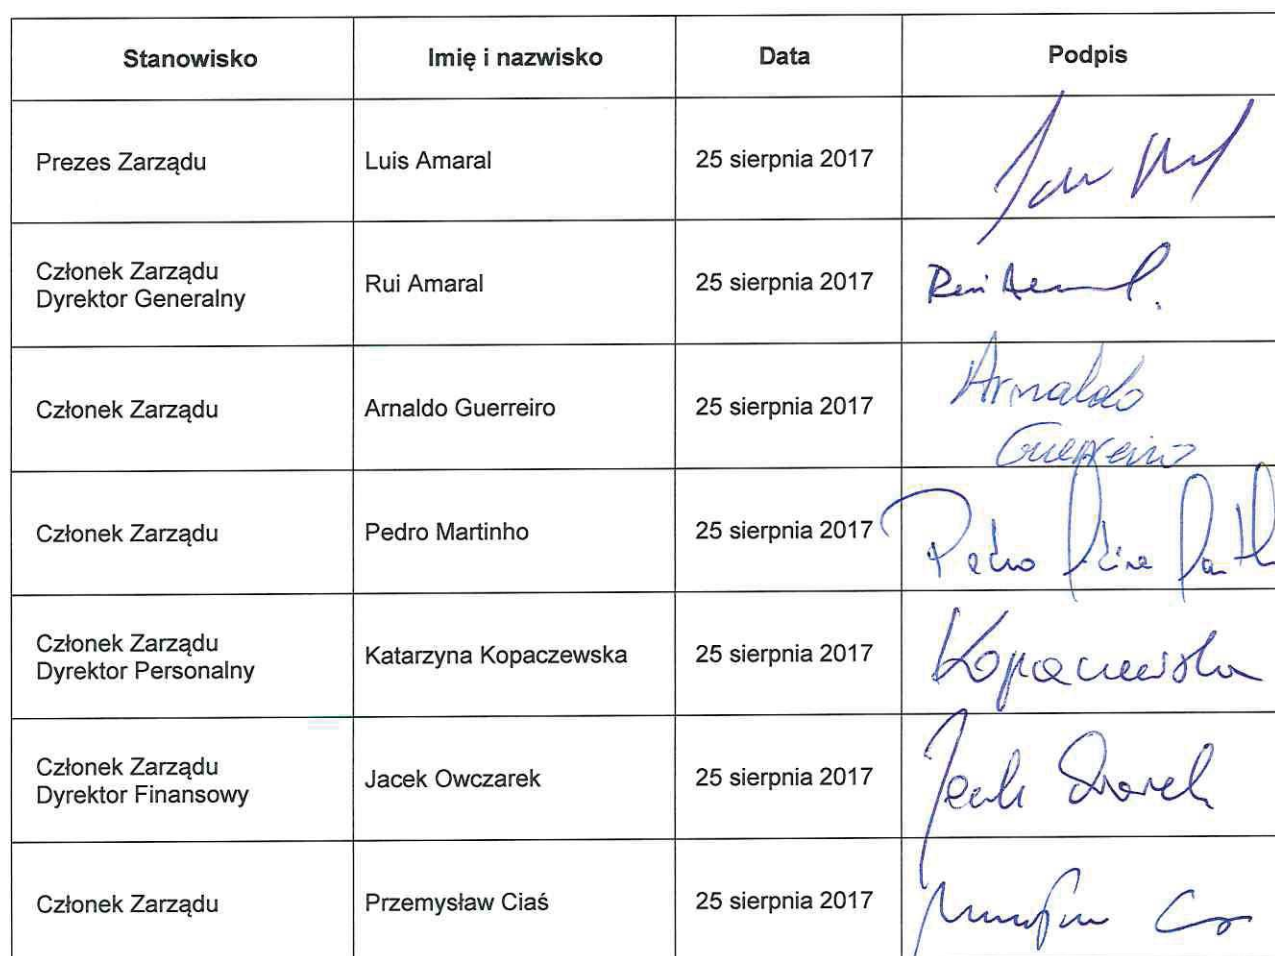 Stanowisko Imię i nazwisko Data Podpis
Prezes Zarządu Luis Amaral 25 sierpnia 2017
Członek Zarządu
Dyrektor Generalny Rui Amaral 25 sierpnia 2017
Członek Zarządu Arnaldo Guerreiro 25 sierpnia 2017 Arnaldo
Guerreiro
Członek Zarządu Pedro Martinho 25 sierpnia 2017 Pedro
Członek Zarządu
Dyrektor Personalny Katarzyna Kopaczewska 25 sierpnia 2017 Kopaczewska
Członek Zarządu
Dyrektor Finansowy Jacek Owczarek 25 sierpnia 2017
Członek Zarządu Przemysław Ciaś 25 sierpnia 2017